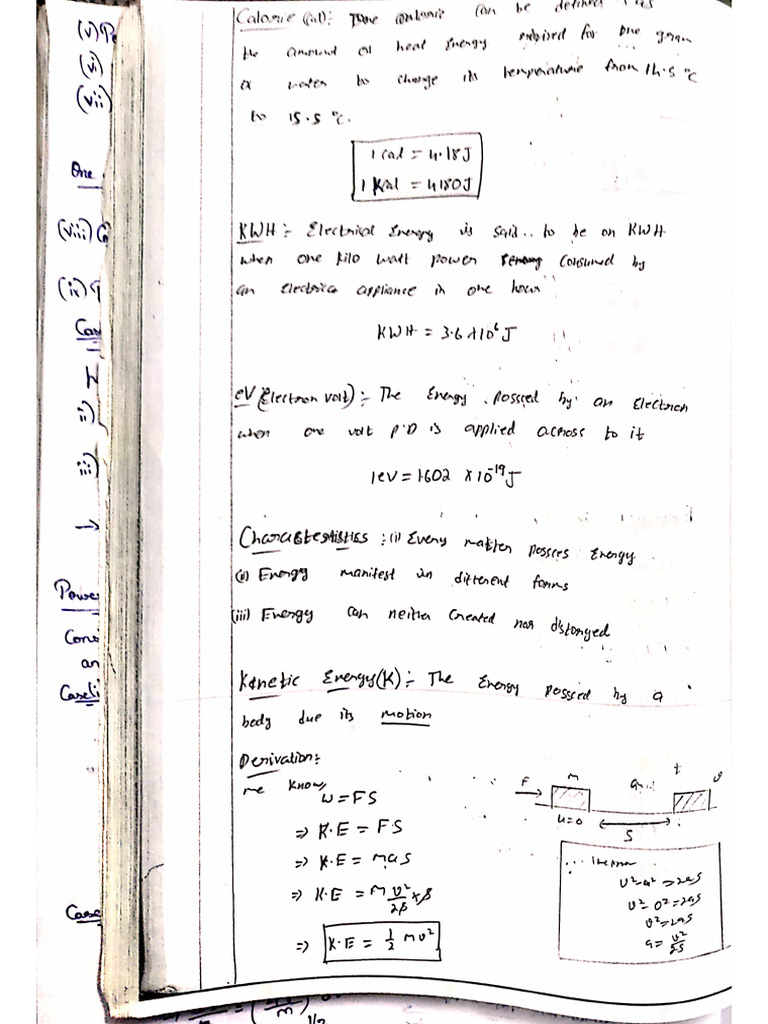 (v) Pe
(vi)
(vii)
One
(viii) G
(ix) 9
Cas
ii)
iii)
→
Power
Conse
an
Case(i
Case
Calorie (cal):- The calorie can be defined as
the amount of heat Energy required for one gram
of water to change its temperature from 14.5 °C
to 15.5 °C.
1 cal = 4.18J
1 Kcal = 4180J
KWH:- Electrical Energy is said to be on KWH
when one kilo watt power consumed by
an Electrica appliance in one hour
KWH = 3.6 x 10⁶ J
eV (Electron volt):- The Energy possed by an Electron
when one volt P.D is applied across to it
1eV = 1.602 x 10⁻¹⁹ J
Charactestistics :(i) Every matter posses Energy
(ii) Energy manifest in different forms
(iii) Energy can neither Created nor distoryed
Kinetic Energy(K):- The Energy possed by a
body due its motion
Derivation:-
we know,
W = FS
⇒ K.E = F.S
⇒ K.E = mas
⇒ K.E = m v²/2s x s
⇒ K.E = 1/2 mv²
F m a t v
u=0 S
v²-u² = 2as
v²-0² = 2as
v² = 2as
a = v²/2s